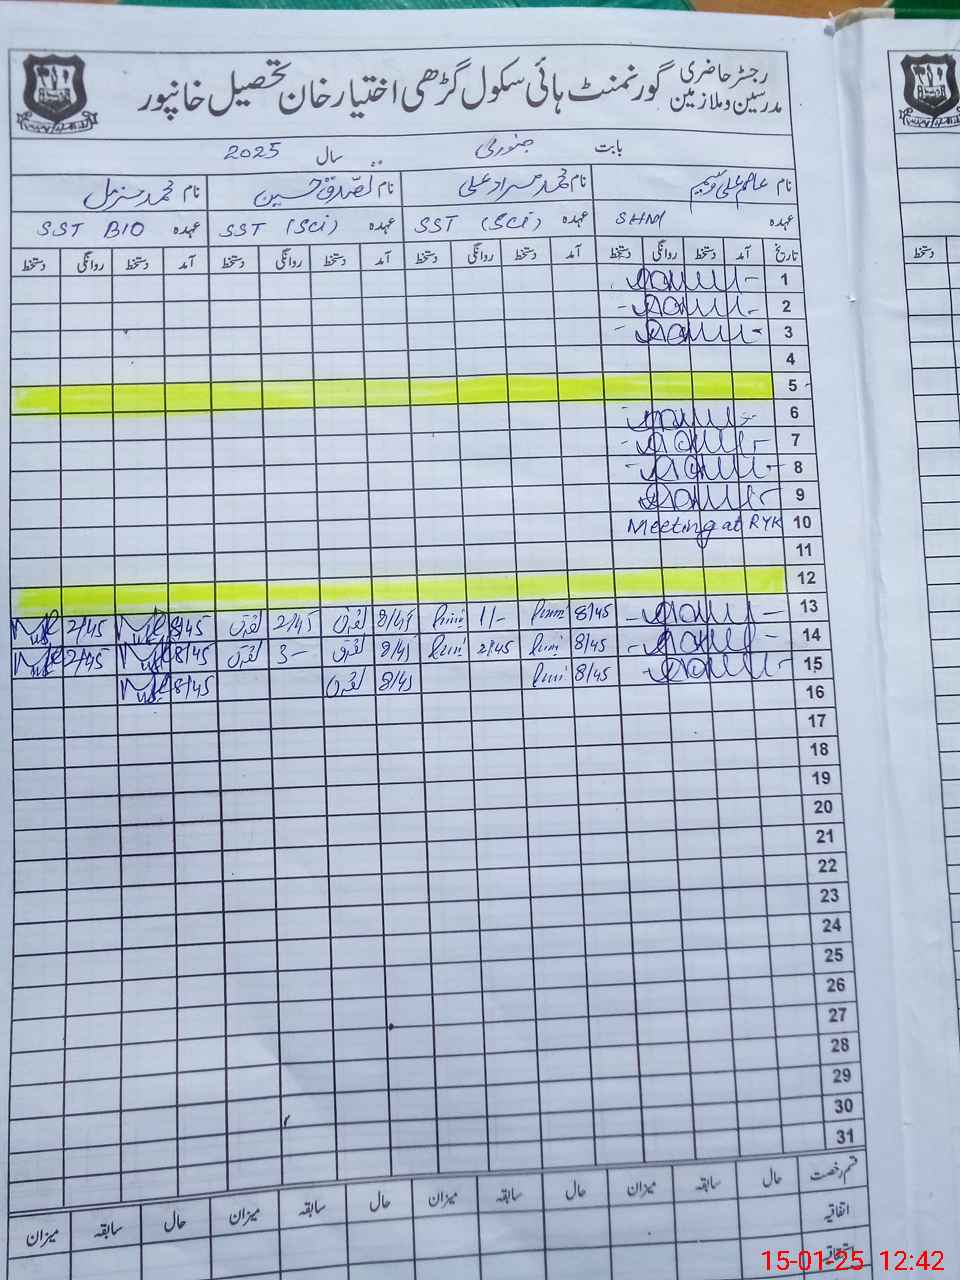 رجسٹر حاضری مدرسین و ملازمین گورنمنٹ ہائی سکول گڑھی اختیار خان تحصیل خانپور
بابت جنوری سال 2025
نام عاصم علی وسیم نام محمد مراد علی نام تصدق حسین نام محمد مزمل
عہدہ SHM SST (Sci) عہدہ SST (Sci) عہدہ SST BIO
تاریخ آمد دستخط روانگی دستخط آمد دستخط روانگی دستخط آمد دستخط روانگی دستخط آمد دستخط روانگی دستخط دستخط
1
2
3
4
5
6
7
8
9
10 Meeting at RYK
11
12
13 8/45 1/- 8/45 2/45 8/45 2/45
14 8/45 2/45 8/45 3- 8/45 2/45
15 8/45 8/45 8/45
16
17
18
19
20
21
22
23
24
25
26
27
28
29
30
31
قسم رخصت حال سابقہ میزان حال سابقہ میزان حال سابقہ میزان حال سابقہ میزان
اتفاقیہ
استحقاقیہ
15-01-25 12:42